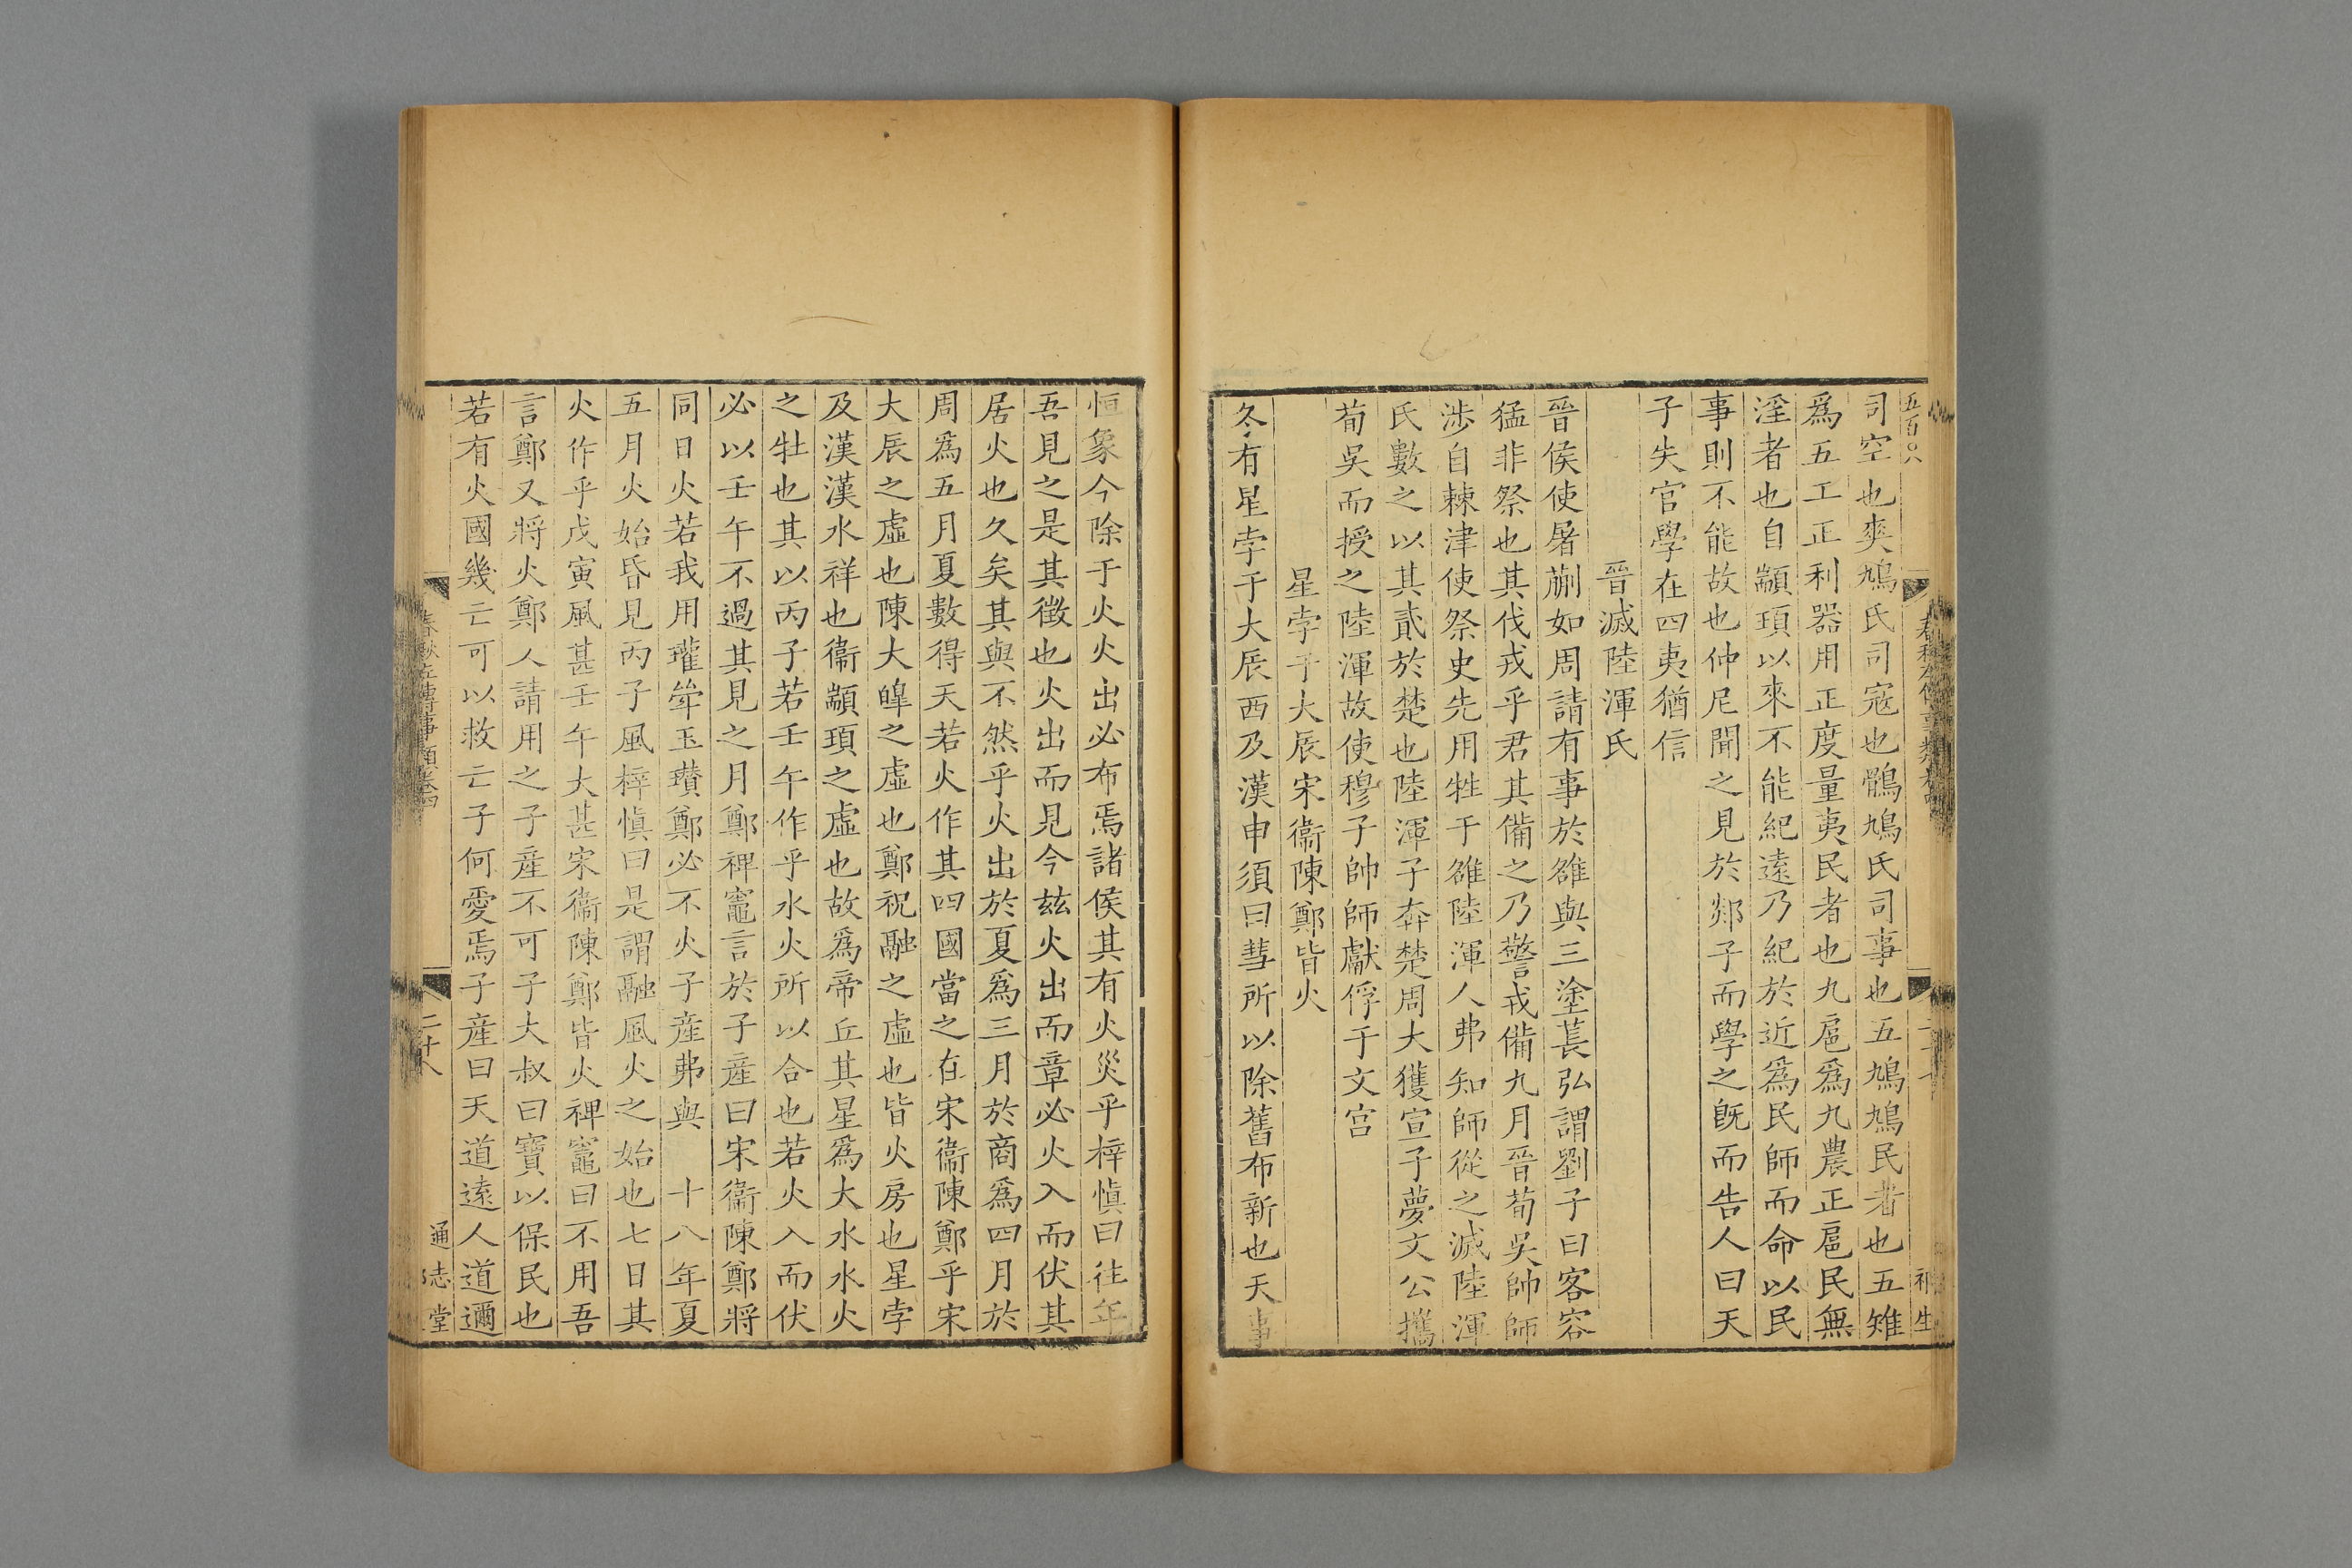 五百〇八
司空也爽鳩氏司寇也鶻鳩氏司事也五鳩鳩民者也五雉
爲五工正利器用正度量夷民者也九扈爲九農正扈民無
淫者也自顓頊以來不能紀遠乃紀於近爲民師而命以民
事則不能故也仲尼聞之見於郯子而學之旣而告人曰天
子失官學在四夷猶信
晉滅陸渾氏
晉侯使屠蒯如周請有事於雒與三塗萇弘謂劉子曰客容
猛非祭也其伐戎乎君其備之乃警戎備九月晉荀吳帥師
涉自棘津使祭史先用牲于雒陸渾人弗知師從之滅陸渾
氏數之以其貳於楚也陸渾子奔楚周大獲宣子夢文公攜
荀吳而授之陸渾故使穆子帥師獻俘于文宮
星孛于大辰宋衞陳鄭皆火
冬有星孛于大辰西及漢申須曰彗所以除舊布新也天事
恒象今除于火火出必布焉諸侯其有火災乎梓愼曰往年
吾見之是其徵也火出而見今茲火出而章必火入而伏其
居火也久矣其與不然乎火出於夏爲三月於商爲四月於
周爲五月夏數得天若火作其四國當之在宋衞陳鄭乎宋
大辰之虛也陳大皥之虛也鄭祝融之虛也皆火房也星孛
及漢漢水祥也衞顓頊之虛也故爲帝丘其星爲大水水火
之牡也其以丙子若壬午作乎水火所以合也若火入而伏
必以壬午不過其見之月鄭裨竈言於子產曰宋衞陳鄭將
同日火若我用瓘斝玉瓚鄭必不火子產弗與　十八年夏
五月火始昏見丙子風梓愼曰是謂融風火之始也七日其
火作乎戊寅風甚壬午大甚宋衞陳鄭皆火裨竈曰不用吾
言鄭又將火鄭人請用之子產不可子大叔曰寶以保民也
若有火國幾亡可以救亡子何愛焉子產曰天道遠人道邇
春秋左傳事類卷四
二十八
通志堂